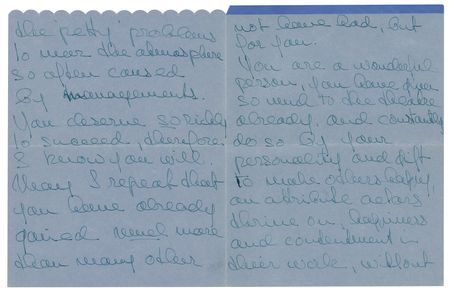 the petty problems
to mar the atmosphere
so often caused
By managements.
You deserve so richly
to succeed, therefore
I know you will.
May I repeat that
you have already
gained much more
than many other
not have had, But
for you.
You are a wonderful
person, you have given
so much to the theatre
already. and constantly
do so By your
personality and gift
to make others happy,
an attribute actors
thrive on, happiness
and contentment in
their work, without